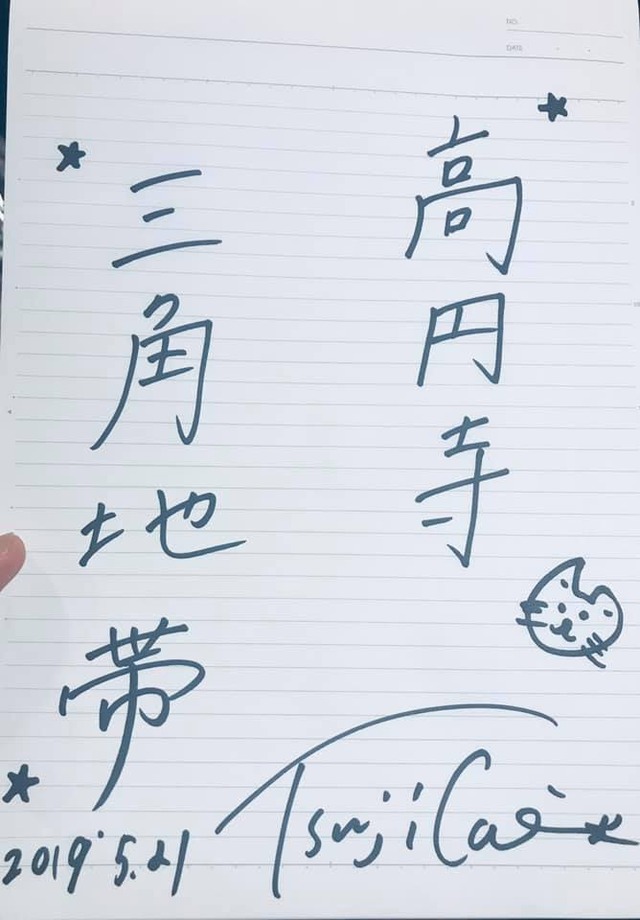 NO.
DATE
高円寺
三角地帯
2019.5.21
TsujiCae